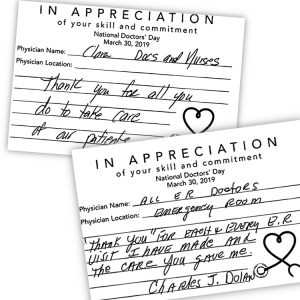 IN APPRECIATION
of your skill and commitment
National Doctors' Day
March 30, 2019
Physician Name: Docs and Nurses
Physician Location:
Thank you for all you
do to take care
of our patients
IN APPRECIATION
of your skill and commitment
National Doctors' Day
March 30, 2019
Physician Name: ALL ER DOCTORS
Physician Location: EMERGENCY ROOM
THANK YOU" FOR EACH & EVERY E.R
VISIT I HAVE MADE AND
THE CARE YOU GAVE ME.
CHARLES J. DOLAN